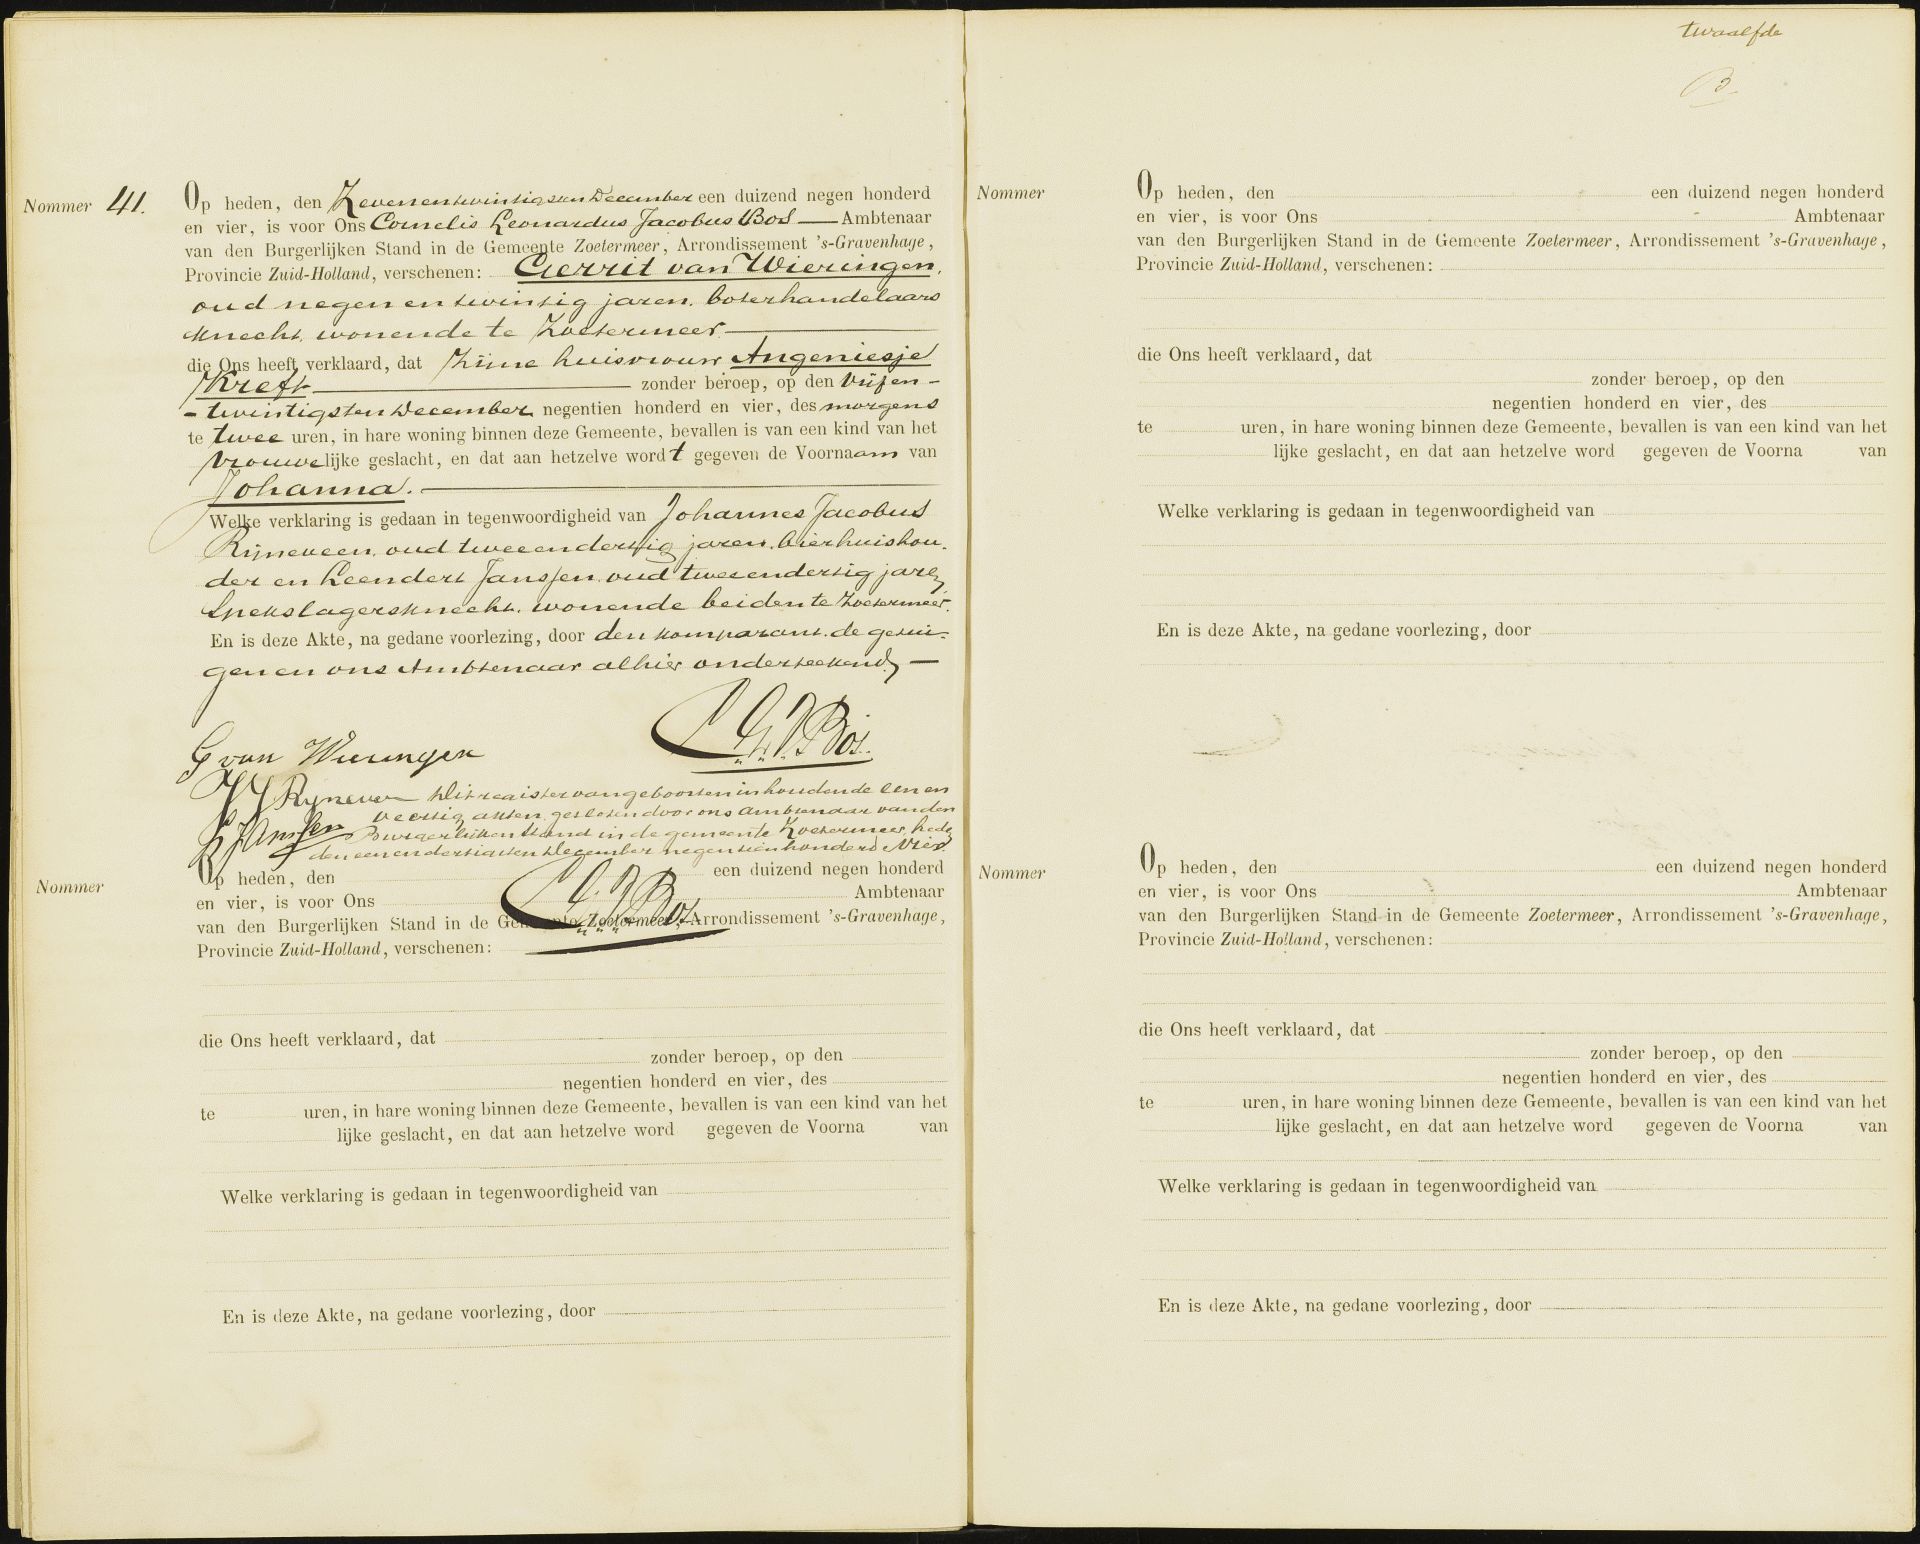 Nommer 41.
Op heden, den Zevenentwintigsten December een duizend negen honderd
en vier, is voor Ons Cornelis Leonardus Jacobus Bos Ambtenaar
van den Burgerlijken Stand in de Gemeente Zoetermeer, Arrondissement 's-Gravenhage,
Provincie Zuid-Holland, verschenen: Gerrit van Wieringen,
oud negen en twintig jaren, boterhandelaars
knecht, wonende te Zoetermeer
die Ons heeft verklaard, dat Zijne huisvrouw Angeniesje
Kreft zonder beroep, op den vijfen-
-twintigsten December negentien honderd en vier, des morgens
te twee uren, in hare woning binnen deze Gemeente, bevallen is van een kind van het
vrouwelijke geslacht, en dat aan hetzelve wordt gegeven de Voornaam van
Johanna.
Welke verklaring is gedaan in tegenwoordigheid van Johannes Jacobus
Rijneveen, oud tweeendertig jaren, bierhuishou-
der en Leendert Janssen, oud tweeendertig jaren,
Spekslagersknecht, wonende beiden te Zoetermeer.
En is deze Akte, na gedane voorlezing, door den komparant, de getui-
gen en ons Ambtenaar alhier onderteekend,
C L J Bos.
G van Wieringen
J J Rijneveen
L Janssen
Dit register van geboorten inhoudende een en
veertig akten, gesloten door ons Ambtenaar van den
Burgerlijken Stand in de gemeente Zoetermeer, heden
den eenendertigsten December negentienhonderd Vier.
C L J Bos.
Nommer
Op heden, den een duizend negen honderd
en vier, is voor Ons Ambtenaar
van den Burgerlijken Stand in de Gemeente Zoetermeer, Arrondissement 's-Gravenhage,
Provincie Zuid-Holland, verschenen:
die Ons heeft verklaard, dat
zonder beroep, op den
negentien honderd en vier, des
te uren, in hare woning binnen deze Gemeente, bevallen is van een kind van het
lijke geslacht, en dat aan hetzelve word gegeven de Voorna van
Welke verklaring is gedaan in tegenwoordigheid van
En is deze Akte, na gedane voorlezing, door
twaalfde
B
Nommer
Op heden, den een duizend negen honderd
en vier, is voor Ons Ambtenaar
van den Burgerlijken Stand in de Gemeente Zoetermeer, Arrondissement 's-Gravenhage,
Provincie Zuid-Holland, verschenen:
die Ons heeft verklaard, dat
zonder beroep, op den
negentien honderd en vier, des
te uren, in hare woning binnen deze Gemeente, bevallen is van een kind van het
lijke geslacht, en dat aan hetzelve word gegeven de Voorna van
Welke verklaring is gedaan in tegenwoordigheid van
En is deze Akte, na gedane voorlezing, door
Nommer
Op heden, den een duizend negen honderd
en vier, is voor Ons Ambtenaar
van den Burgerlijken Stand in de Gemeente Zoetermeer, Arrondissement 's-Gravenhage,
Provincie Zuid-Holland, verschenen:
die Ons heeft verklaard, dat
zonder beroep, op den
negentien honderd en vier, des
te uren, in hare woning binnen deze Gemeente, bevallen is van een kind van het
lijke geslacht, en dat aan hetzelve word gegeven de Voorna van
Welke verklaring is gedaan in tegenwoordigheid van
En is deze Akte, na gedane voorlezing, door